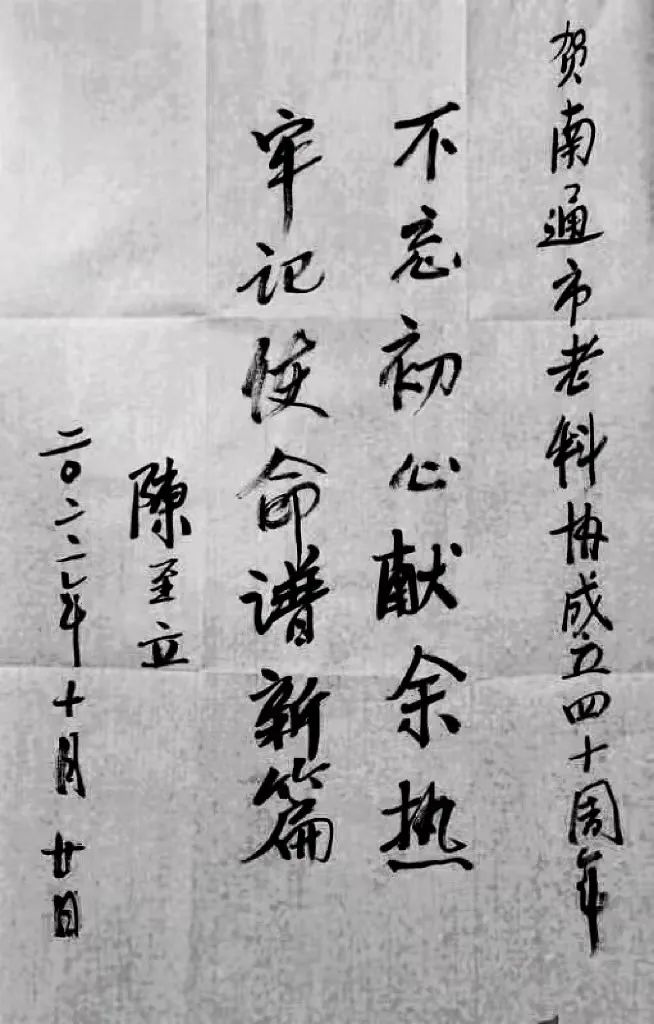 贺南通市老科协成立四十周年
不忘初心献余热
牢记使命谱新篇
陈至立
二〇二二年十月廿日